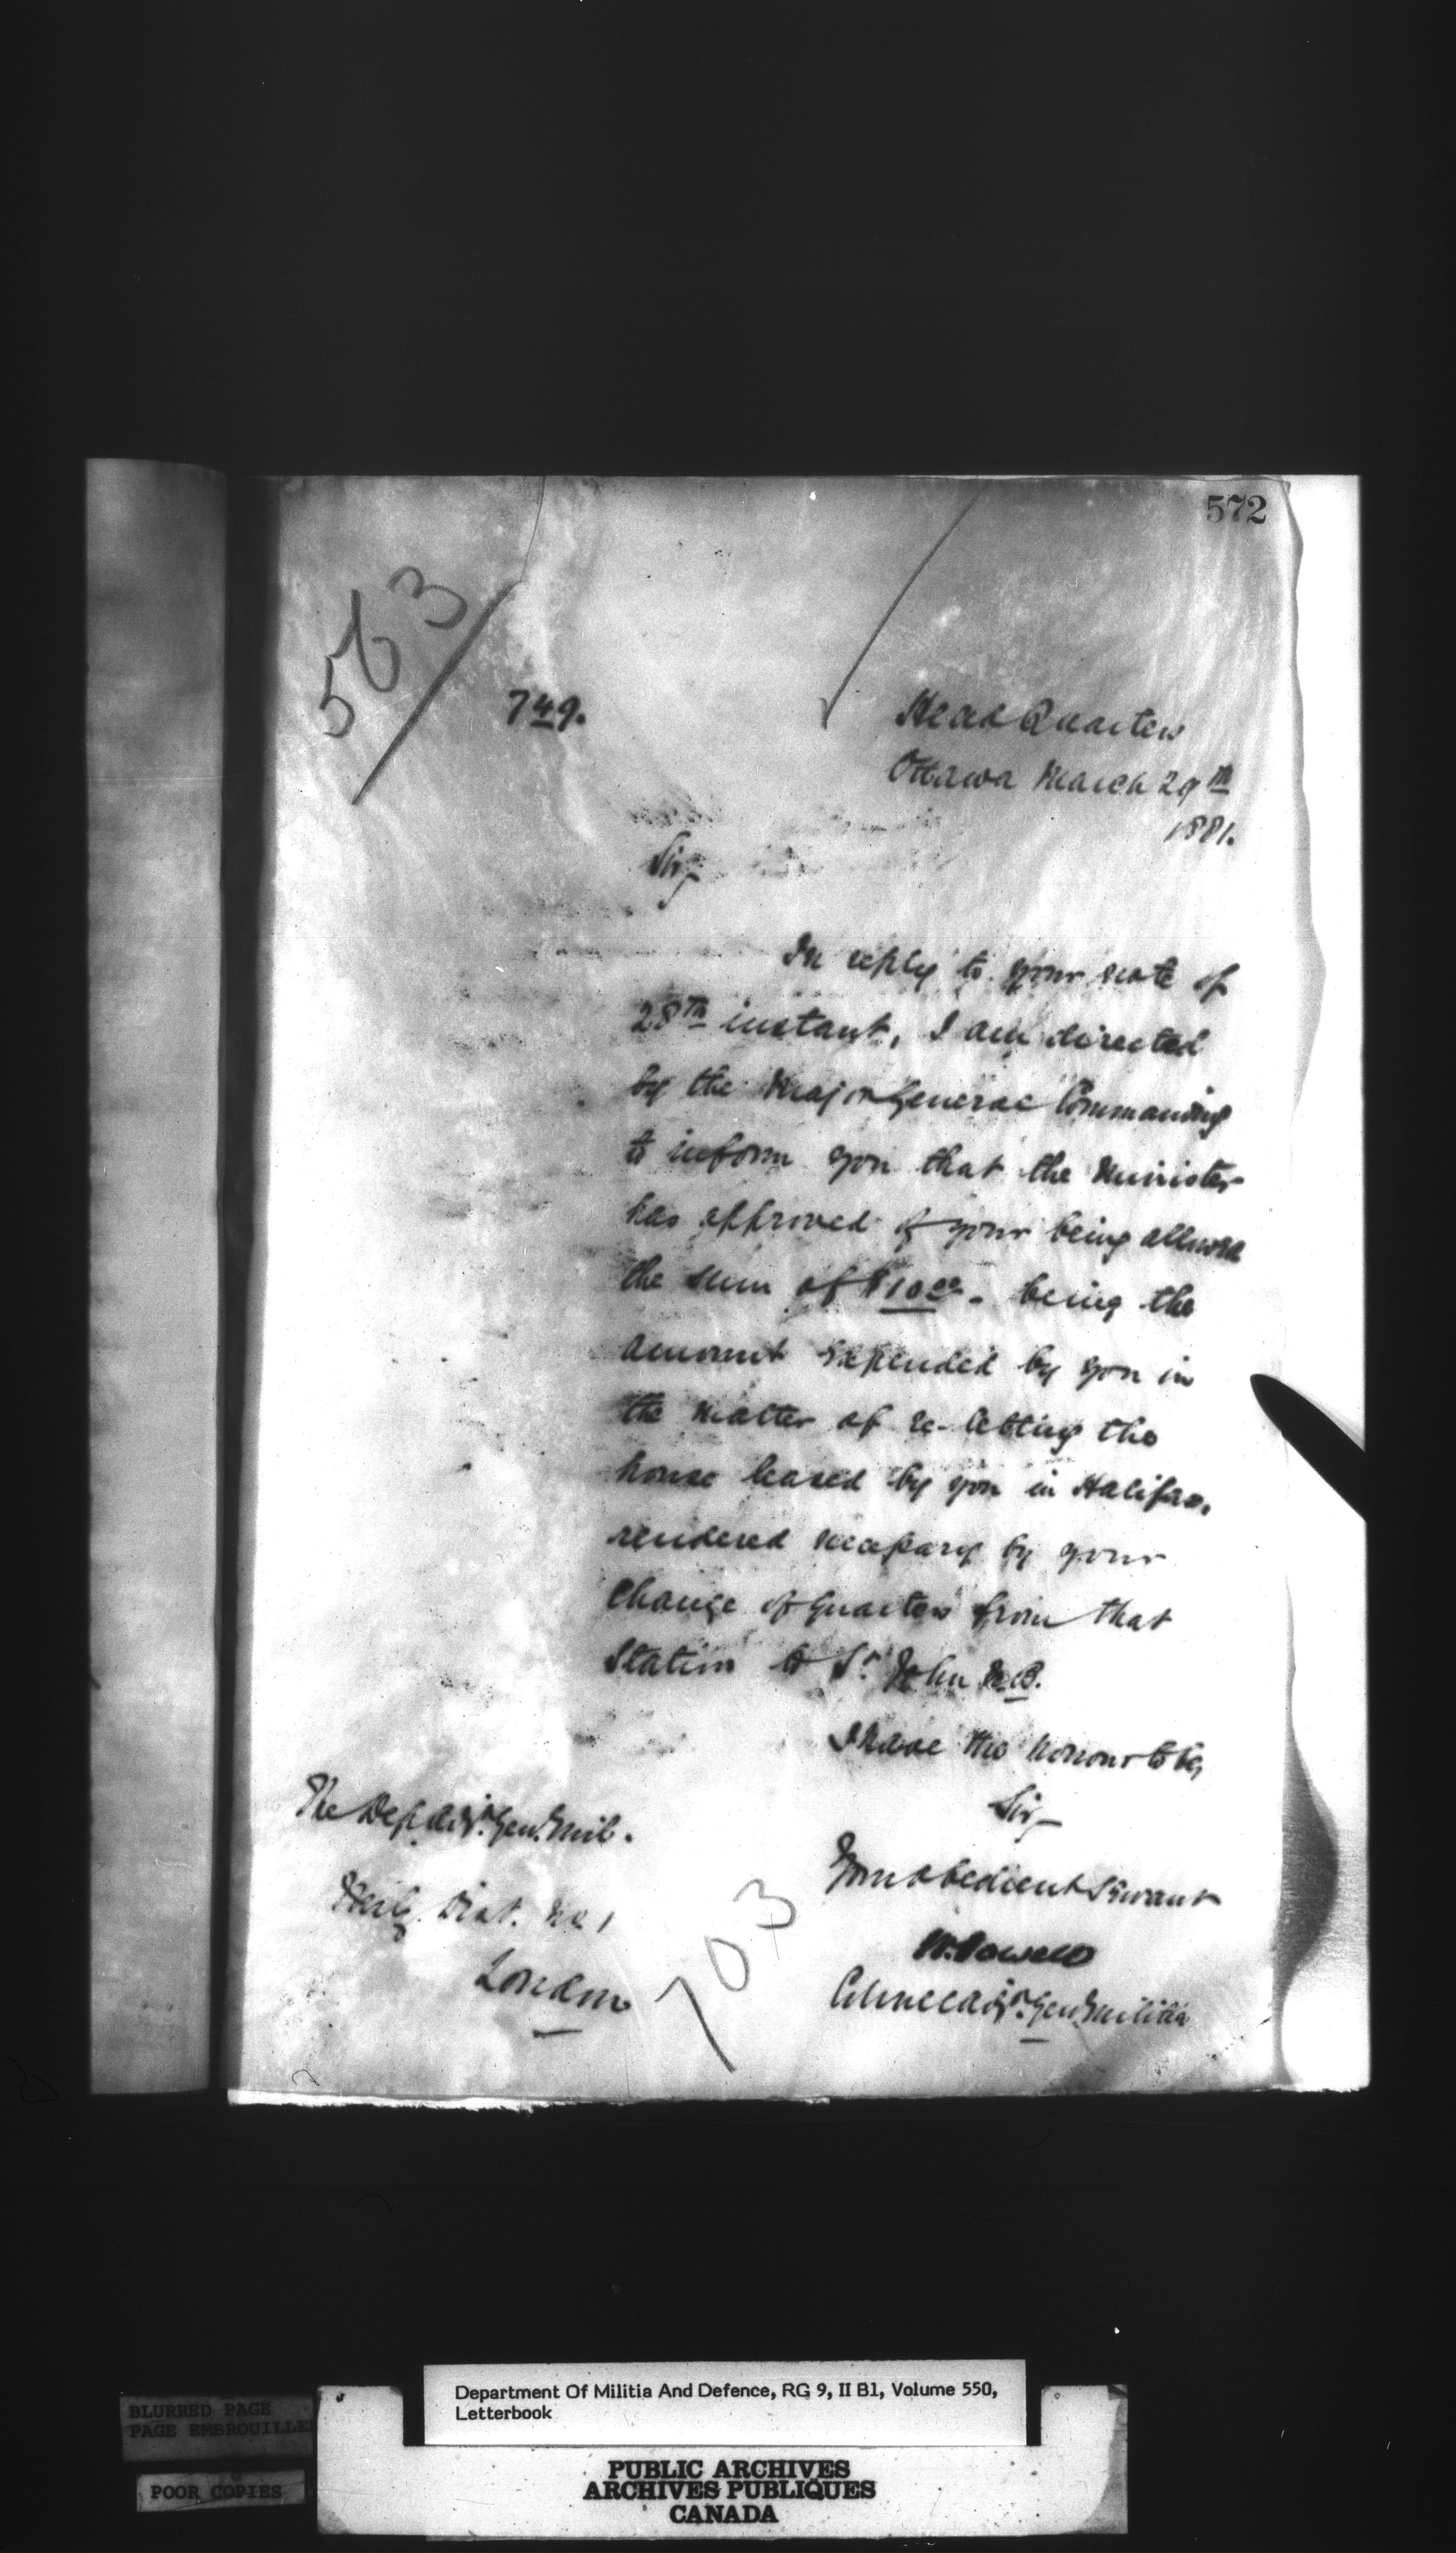 572
563
749.
Head Quarters
Ottawa March 29th
1881.
Sir,
In reply to your note of
28th instant, I am directed
by the Major General Commanding
to inform you that the Minister
has approved of your being allowed
the sum of $10 00 - being the
amount expended by you in
the matter of re-letting the
house leased by you in Halifax,
rendered necessary by your
change of Quarters from that
Station to St. John N.B.
I have the honour to be,
Sir,
Your obedient Servant
W. Powell
Colonel Adjt. Genl Militia
The Dep. Adjt. Genl Mil.
Mily. Dist. No 1
London
703
Department Of Militia And Defence, RG 9, II B1, Volume 550,
Letterbook
BLURRED PAGE
PAGE EMBROUILLEE
POOR COPIES
PUBLIC ARCHIVES
ARCHIVES PUBLIQUES
CANADA